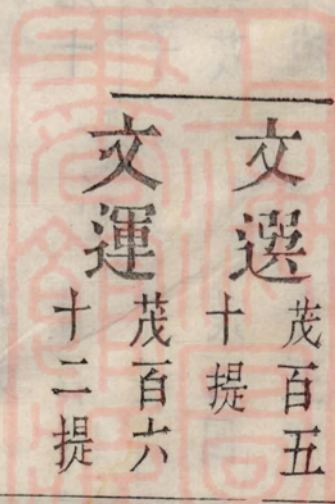 文選茂百五十提
文運茂百六十二提